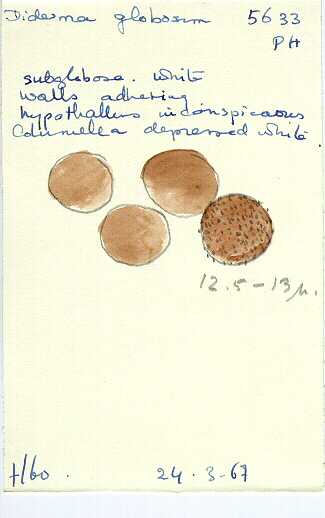 Diderma globosum 5633
PH
subglobose. White
walls adhering
hypothallus inconspicuous
Columella depressed white
12.5-13µ.
24.3-67